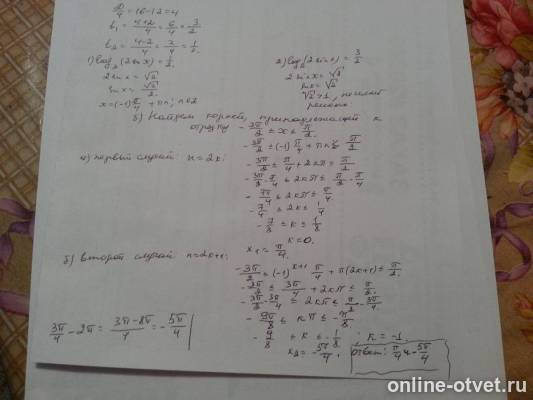 D/4 = 16-12=4
t₁ = (4+2)/4 = 6/4 = 3/2
t₂ = (4-2)/4 = 2/4 = 1/2.
1) log₂(2sinx)=1/2.
2sinx = √2
sinx = √2/2.
x=(-1)ⁿ π/4 + πn; n∈Z
2) log₂(2sinx) = 3/2
2sinx = √8
sinx = √2
√2>1, решений
б) Найдем корней, принадлежащей к
отрезку -3π/2 ≤ x ≤ π/2
-3π/2 ≤ (-1)ⁿ π/4 + πn ≤ π/2
а) первый случай n=2k:
-3π/2 ≤ π/4 + 2kπ ≤ π/2
-3π/2 - π/4 ≤ 2kπ ≤ π/2 - π/4
-7π/4 ≤ 2kπ ≤ π/4
-7/4 ≤ 2k ≤ 1/4
-7/8 ≤ k ≤ 1/8
k=0.
x₁ = π/4.
б) второй случай n=2k+1:
-3π/2 ≤ (-1)ᵏ⁺¹ π/4 + π(2k+1) ≤ π/2.
-3π/2 ≤ 3π/4 + 2kπ ≤ π/2.
-3π/2 - 3π/4 ≤ 2kπ ≤ π/2 - 3π/4
-9π/8 ≤ kπ ≤ -π/8
-9/8 ≤ k ≤ -1/8, k = -1
x₂ = -5π/4.
3π/4 - 2π = (3π-8π)/4 = -5π/4
ответ: π/4 и -5π/4
online-otvet.ru